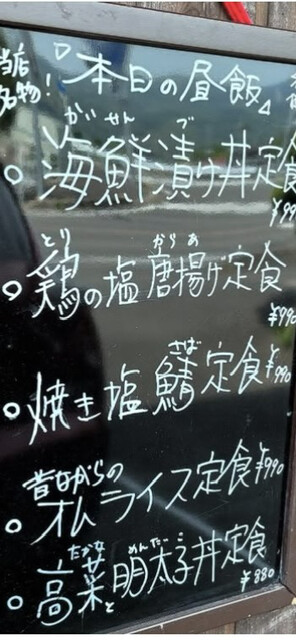 当店
名物!
『本日の昼飯』
かいせん づ
○海鮮漬け丼定食
¥990
とり からあ
○鶏の塩唐揚げ定食
¥990
さば
○焼き塩鯖定食¥990
昔ながらの
○オムライス定食¥990
たかな めんたいこ
○高菜と明太子丼定食
¥880